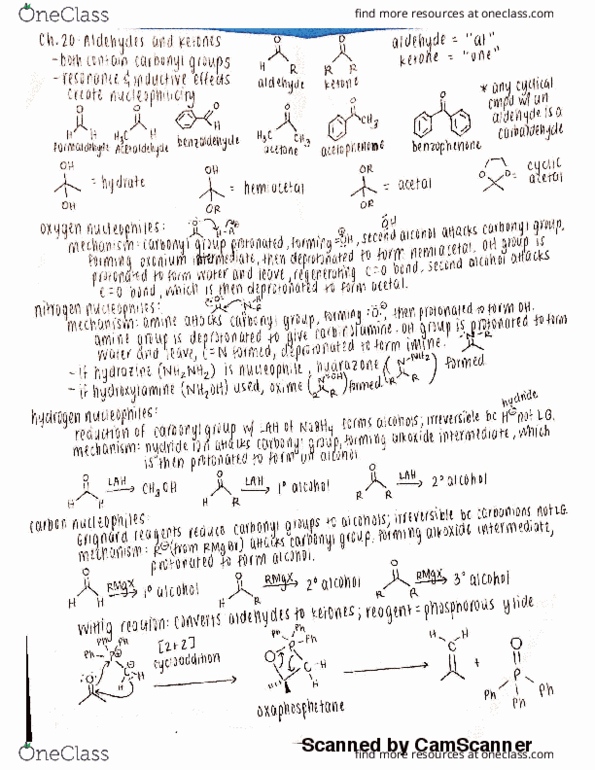 OneClass
find more resources at oneclass.com
Ch. 20 - Aldehydes and ketones
- both contain carbonyl groups
- resonance & inductive effects
create nucleophilicity
O
H R
aldehyde
O
R R
ketone
aldehyde = "al"
ketone = "one"
* any cyclical
cmpd w/ an
aldehyde is a
carbaldehyde
formaldehyde
acetaldehyde
benzaldehyde
acetone
acetophenone
benzophenone
OH
OH
= hydrate
OH
OR
= hemiacetal
OR
OR
= acetal
= cyclic
acetal
oxygen nucleophiles:
mechanism: carbonyl group protonated, forming =OH, second alcohol attacks carbonyl group,
forming oxonium intermediate, then deprotonated to form hemiacetal. OH group is
protonated to form water and leave, regenerating C=O bond, second alcohol attacks
C=O bond, which is then deprotonated to form acetal.
nitrogen nucleophiles:
mechanism: amine attacks carbonyl group, forming then protonated to form OH.
amine group is deprotonated to give carbinolamine. OH group is protonated to form
water and leave, C=N formed, deprotonated to form imine.
- if hydrazine (NH2NH2) is nucleophile, hydrazone ( N-NH2 ) formed
- if hydroxylamine (NH2OH) used, oxime ( N-OH ) formed
hydrogen nucleophiles:
hydride
reduction of carbonyl group w/ LAH or NaBH4 forms alcohols; irreversible bc H⊖ not LG.
mechanism: hydride ion attacks carbonyl group, forming alkoxide intermediate, which
is then protonated to form an alcohol
LAH
CH3OH
LAH
1° alcohol
LAH
2° alcohol
carbon nucleophiles:
Grignard reagents reduce carbonyl groups to alcohols; irreversible bc carbanions not LG.
mechanism: R⊖ (from RMgBr) attacks carbonyl group. forming alkoxide intermediate,
protonated to form alcohol.
RMgX
1° alcohol
RMgX
2° alcohol
RMgX
3° alcohol
Wittig reaction: converts aldehydes to ketones; reagent = phosphorous ylide
[2+2]
cycloaddition
oxaphosphetane
+
O
Ph P Ph
Ph
Scanned by CamScanner
OneClass
find more resources at oneclass.com